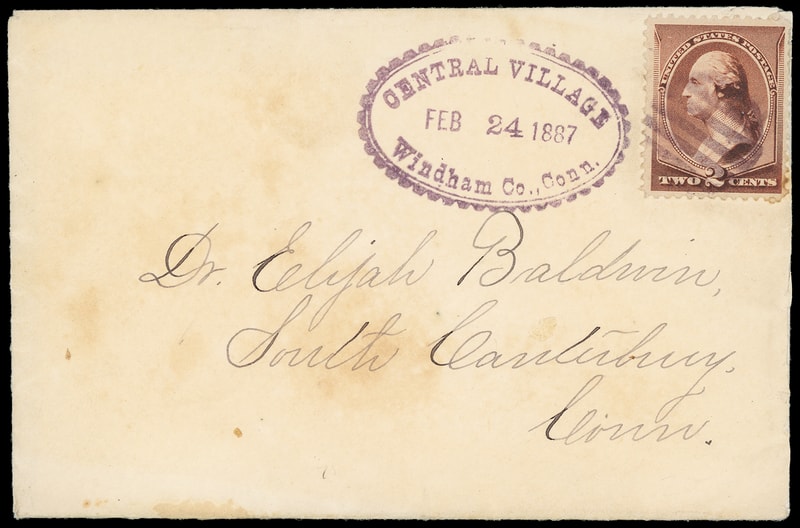 CENTRAL VILLAGE
FEB 24 1887
Windham Co., Conn.
UNITED STATES POSTAGE
TWO 2 CENTS
Dr. Elijah Baldwin,
South Canterbury,
Conn.